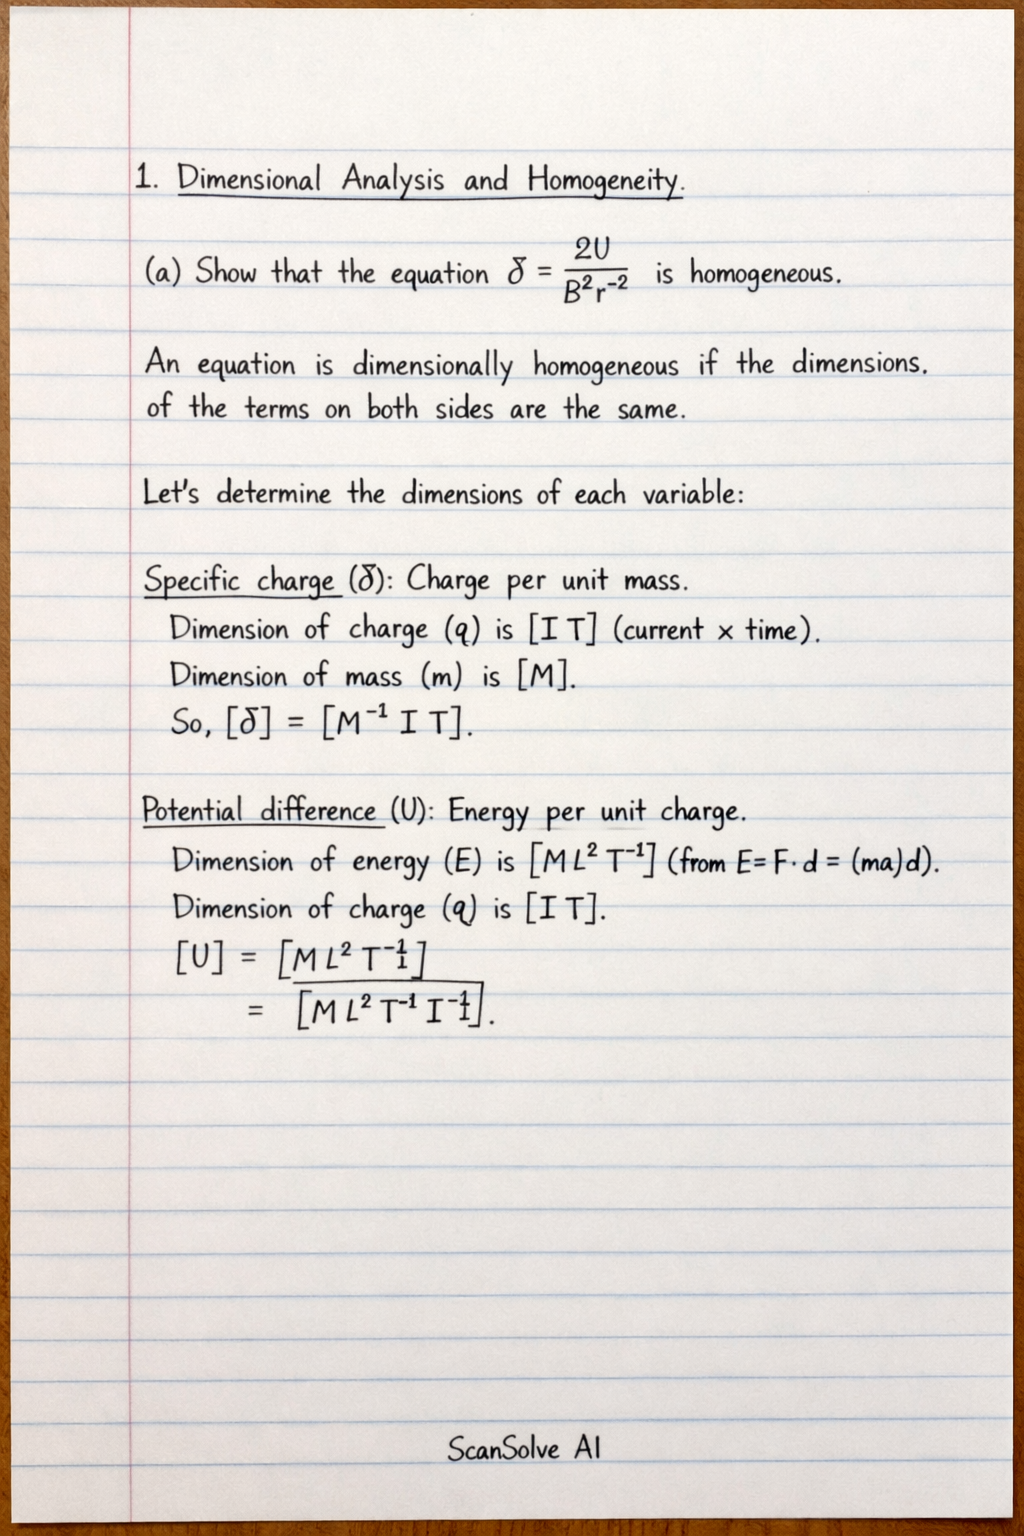 1. Dimensional Analysis and Homogeneity.
(a) Show that the equation ४ = 2U / B²r⁻² is homogeneous.
An equation is dimensionally homogeneous if the dimensions.
of the terms on both sides are the same.
Let's determine the dimensions of each variable:
Specific charge (४): Charge per unit mass.
Dimension of charge (q) is [I T] (current x time).
Dimension of mass (m) is [M].
So, [४] = [M⁻¹ I T].
Potential difference (U): Energy per unit charge.
Dimension of energy (E) is [M L² T⁻¹] (from E= F· d = (ma)d).
Dimension of charge (q) is [I T].
[U] = [M L² T⁻¹]
= [M L² T⁻¹ I⁻¹].
ScanSolve AI